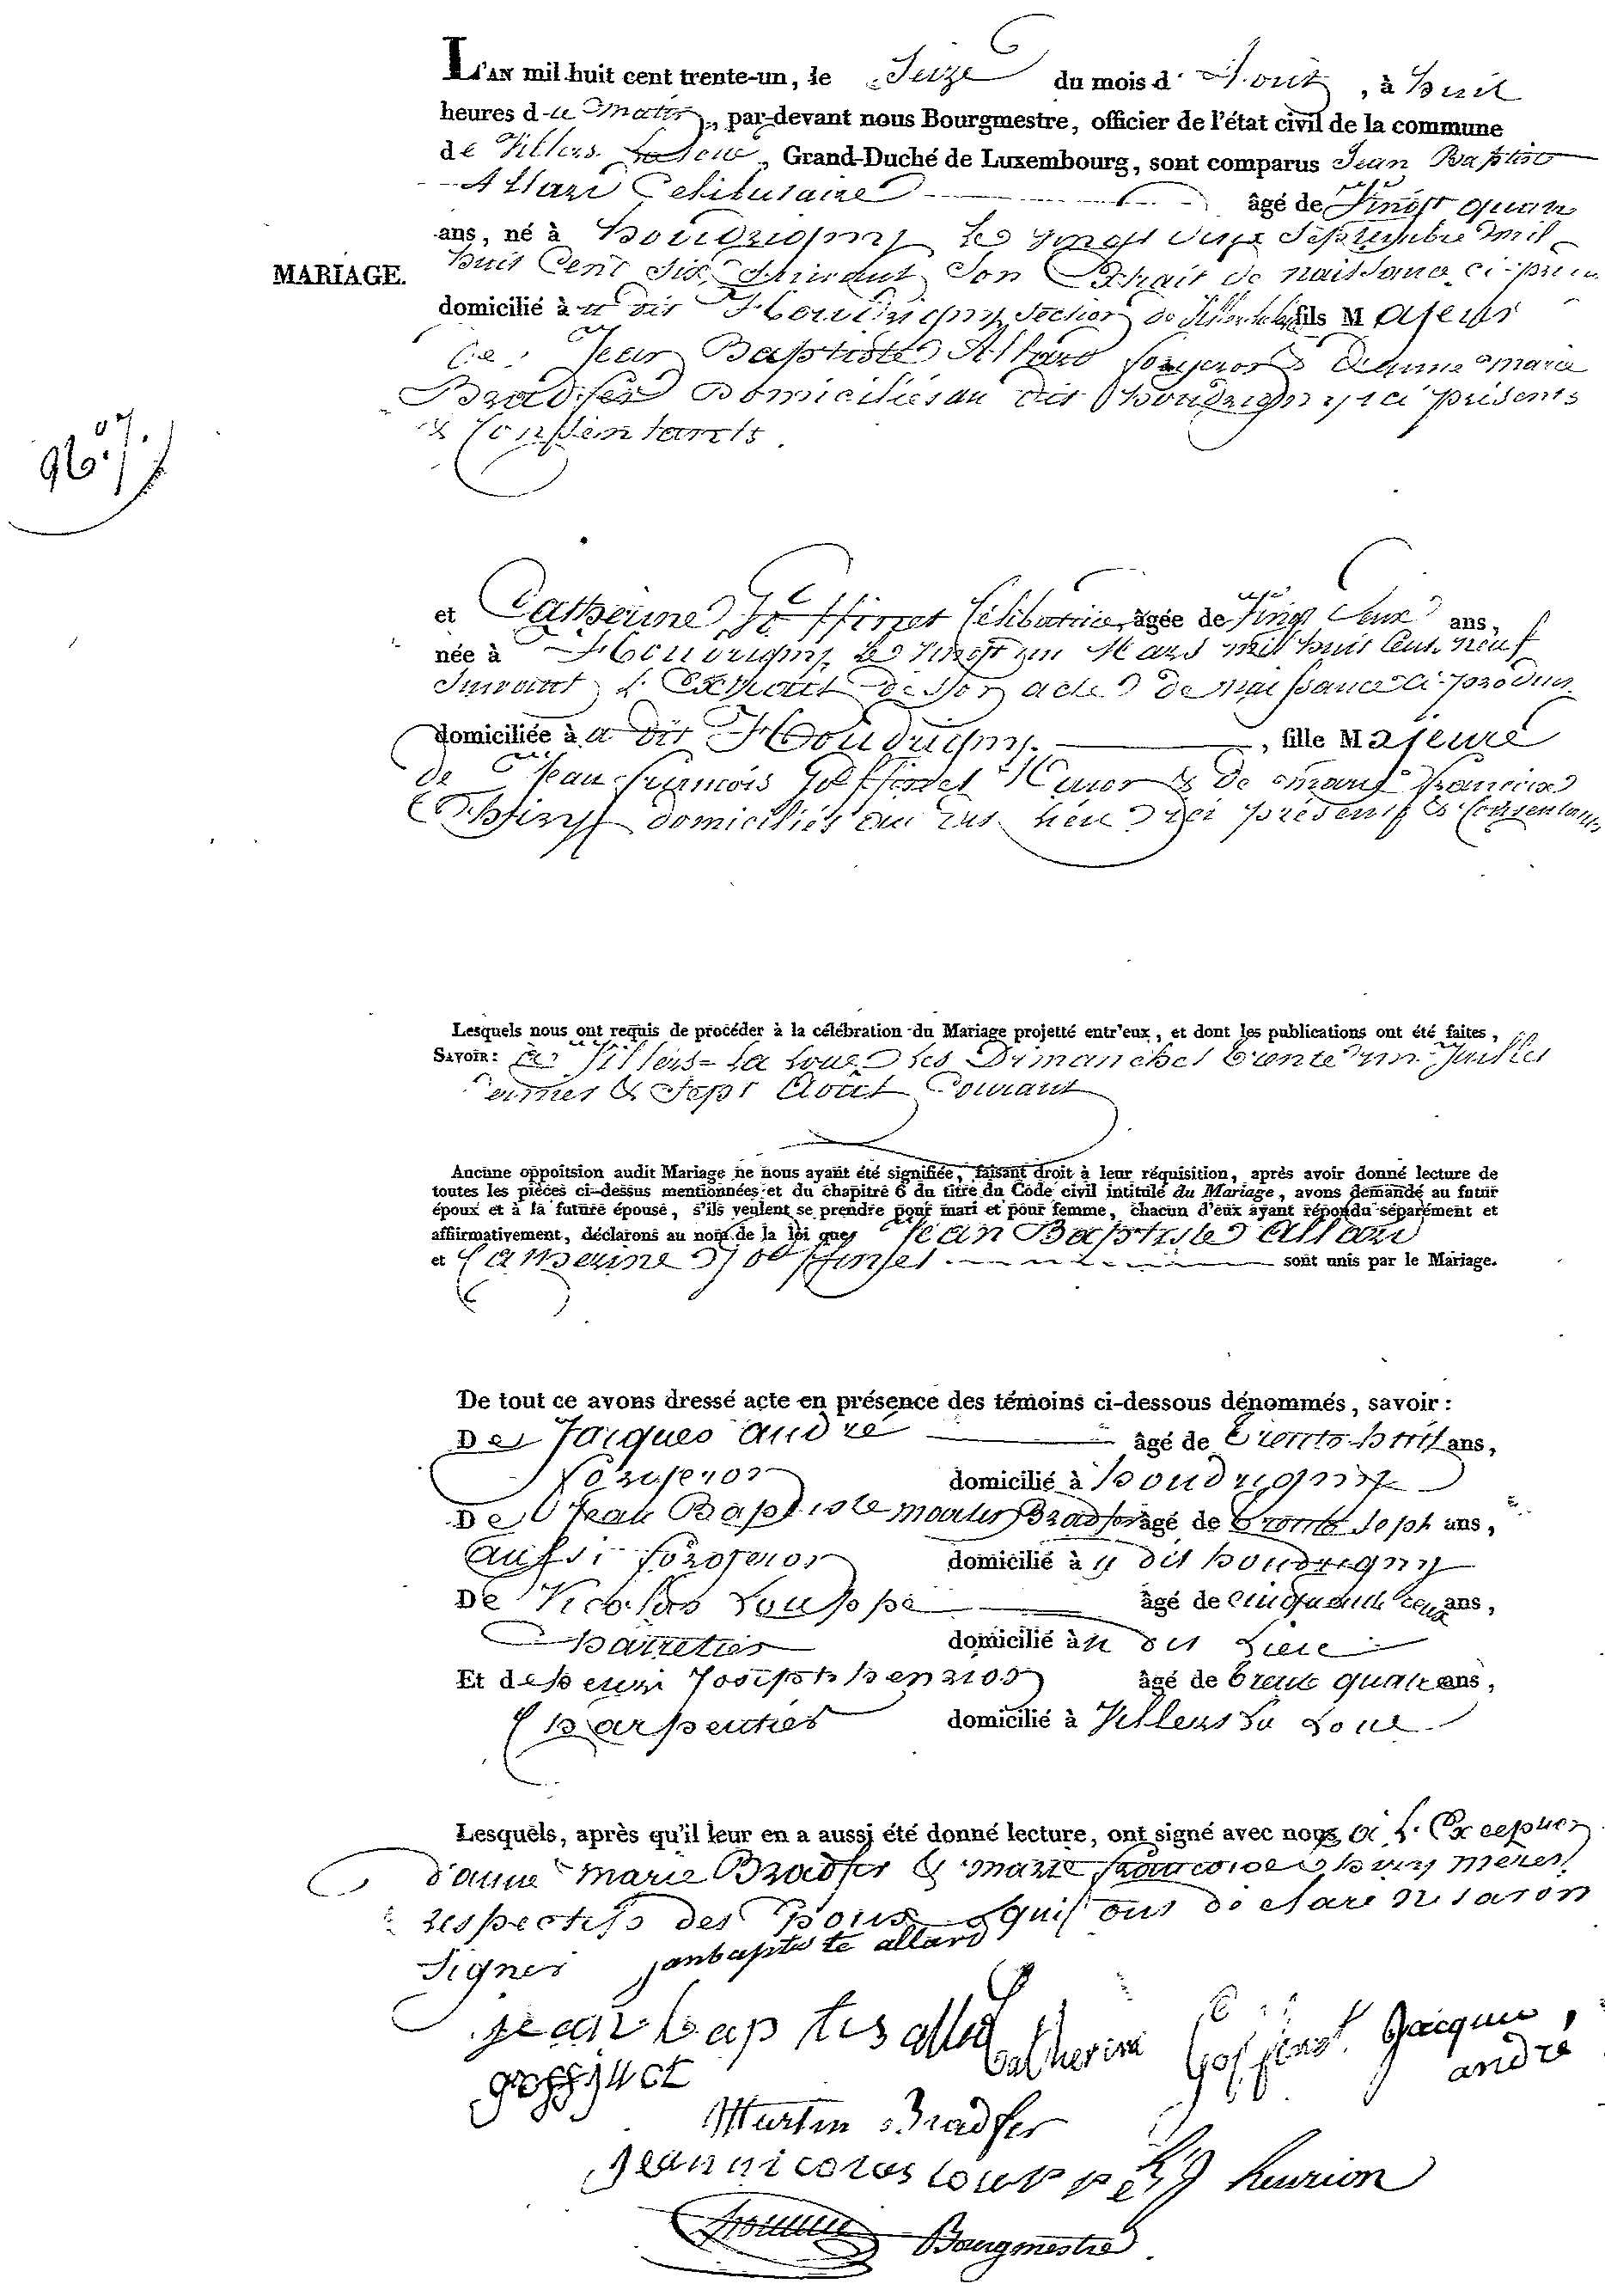 L'AN mil huit cent trente-un, le Seize du mois d'Août, à huit
heures du matin, par-devant nous Bourgmestre, officier de l'état civil de la commune
de Villers-la-Loue, Grand-Duché de Luxembourg, sont comparus Jean Baptiste
Allard Célibataire âgé de Vingt quatre
ans, né à houdrigny le vingt Septembre mil
MARIAGE.
huit Cent Six Suivant Son Extrait de naissance ci-
domicilié à u dit Houdrigny Section de fils Majeur
de Jean Baptiste Allard forgeron & d'anne marie
Bradfer Domiciliés au dit houdrigny ici présents
& Consentants.
No. 7.
et Catherine Goffinet Célibataire, âgée de Vingt deux ans,
née à Houdrigny, le Vingt un Mars mil huit Cent neuf
Suivant l'Extrait de Son acte de naissance ci-produit
domiciliée à u dit Houdrigny. , fille Majeure
de Jean françois Goffinet & de marie françoise
Thiry domiciliés au dit lieu ici présents & Consentants
Lesquels nous ont requis de procéder à la célébration du Mariage projetté entr'eux, et dont les publications ont été faites,
SAVOIR: à Villers-la Loue les Dimanches trente un Juillet
dernier & Sept Août Courant
Aucune oppoitsion audit Mariage ne nous ayant été signifiée, faisant droit à leur réquisition, après avoir donné lecture de
toutes les pièces ci-dessus mentionnées et du chapitre 6 du titre du Code civil intitulé du Mariage, avons demandé au futur
époux et à la future épouse, s'ils veulent se prendre pour mari et pour femme, chacun d'eux ayant répondu séparément et
affirmativement, déclarons au nom de la loi que Jean Baptiste Allard
et Catherine Goffinet sont unis par le Mariage.
De tout ce avons dressé acte en présence des témoins ci-dessous dénommés, savoir:
De Jacques andré âgé de trente-huit ans,
forgeron domicilié à houdrigny
De Jean Baptiste martin Bradfer âgé de trente sept ans,
aussi forgeron domicilié à u dit houdrigny
De Nicolas Louppe âgé de cinquante deux ans,
domicilié à u dit Lieu
Et de henri Joseph henrion âgé de trente quatre ans,
Charpentier domicilié à Villers La Loue
Lesquels, après qu'il leur en a aussi été donné lecture, ont signé avec nous, à l'Exception
d'anne marie Bradfer & marie françoise thiry mères
respectifs des Epoux qui ont déclaré ne savoir
Signer janbaptiste allard
jean baptis allard Catherine Goffinet Jacque
goffinet andré
Martin Bradfer
jean nicolas louppe hJ henrion
Bourgmestre